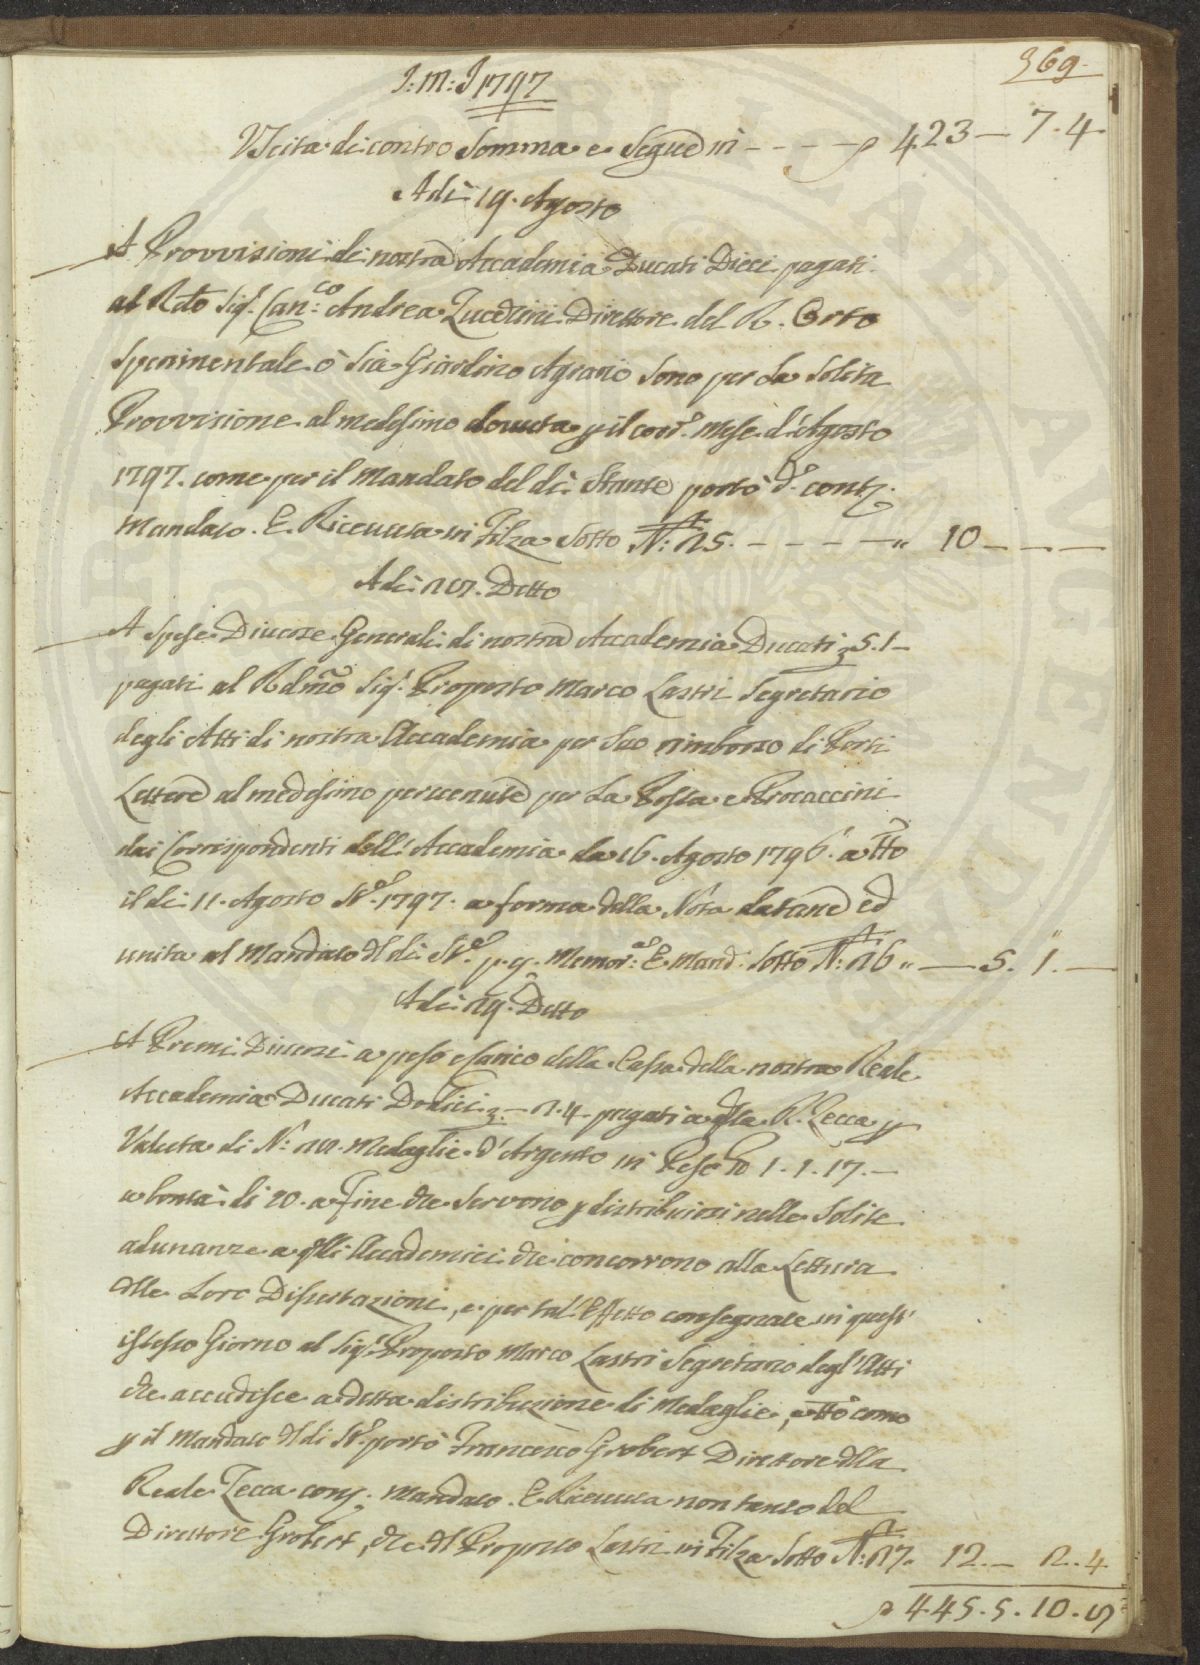 369.
J: M: J 1797
Uscita di contro Somma e Segue in - - - - 423 — 7. 4.
Adì 19. Agosto
A Provvisioni di nostra Accademia Ducati Dieci pagati
al Rdo Sigr. Canco: Andrea Zucchini Direttore del R. Orto
Sperimentale ò Sia Giardino Agrario Sono per La Solita
Provvisione al medesimo dovuta p il corre. Mese d'Agosto
1797. come per il Mandato del dì Stante portò do. cont:
Mandato. E. Ricevuta in Filza Sotto N: 25. - - - - - " 10 — — —
Adì 22. Detto
A Spese Diverse Generali di nostra Accademia Ducati 5. 1 —
pagati al Rdmo Sigr. Proposto Marco Lastri Segretario
degli Atti di nostra Accademia per Suo rimborso di Porti
Lettere al medesimo pervenute per La Posta e Procaccini
dai Corrispondenti dell' Accademia da 16. Agosto 1796. a tto
il dì 11. Agosto Ste. 1797. a forma della Nota datane ed
unita al Mandato dl dì Ste. p. q. Memore: E. Mand. Sotto N: 26 " — 5. 1. —
Adì 29. Detto
A Premi Diversi a peso e carico della Cassa della nostra Reale
Accademia Ducati Dodici — 2. 4. pagati a qsta R. Zecca p
Valuta di N: 22. Medaglie d' Argento in Peso lb 1. 1. 17. —
a bontà di 20. a fine che Servono p distribuirsi nelle Solite
adunanze a qlli Accademici che concorrono alla Lettura
dlle Loro Dissertazioni, e per tal' Effetto consegnate in quest'
istesso Giorno al Sigr. Proposto Marco Lastri Segretario degl' Atti
che accudisce a detta distribuzione di Medaglie, e tto come
p il Mandato dl dì Ste. portò Francesco Grobert Direttore dlla
Reale Zecca cont: Mandato. E. Ricevuta non tanto del
Direttore Grobert, che dl Proposto Lastri in Filza Sotto N: 27. 12. — 2. 4
445. 5. 10. 8